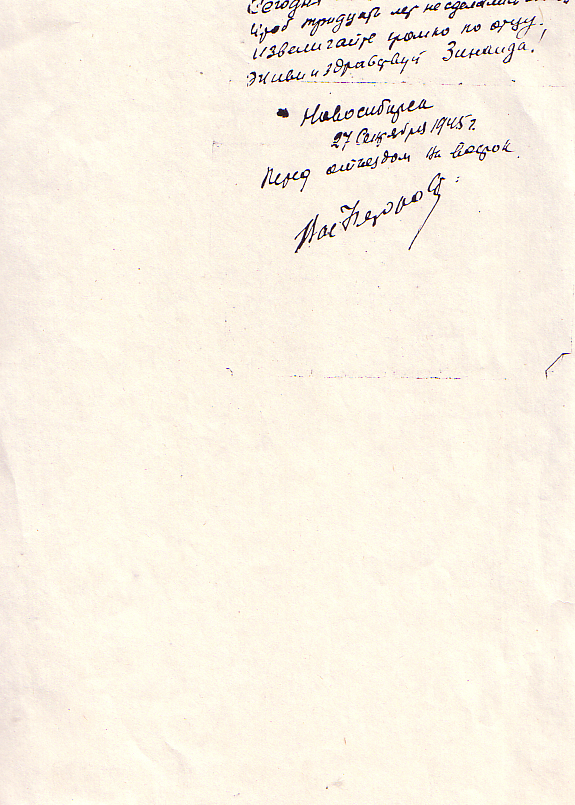 Сегодня
Чтоб тридцать лет не сделали
И звеличайте громко по отцу.
Живи и здравствуй Зинаида!
Новосибирск
27 Сентября 1945 г.
Перед отъездом на восток.
Вас